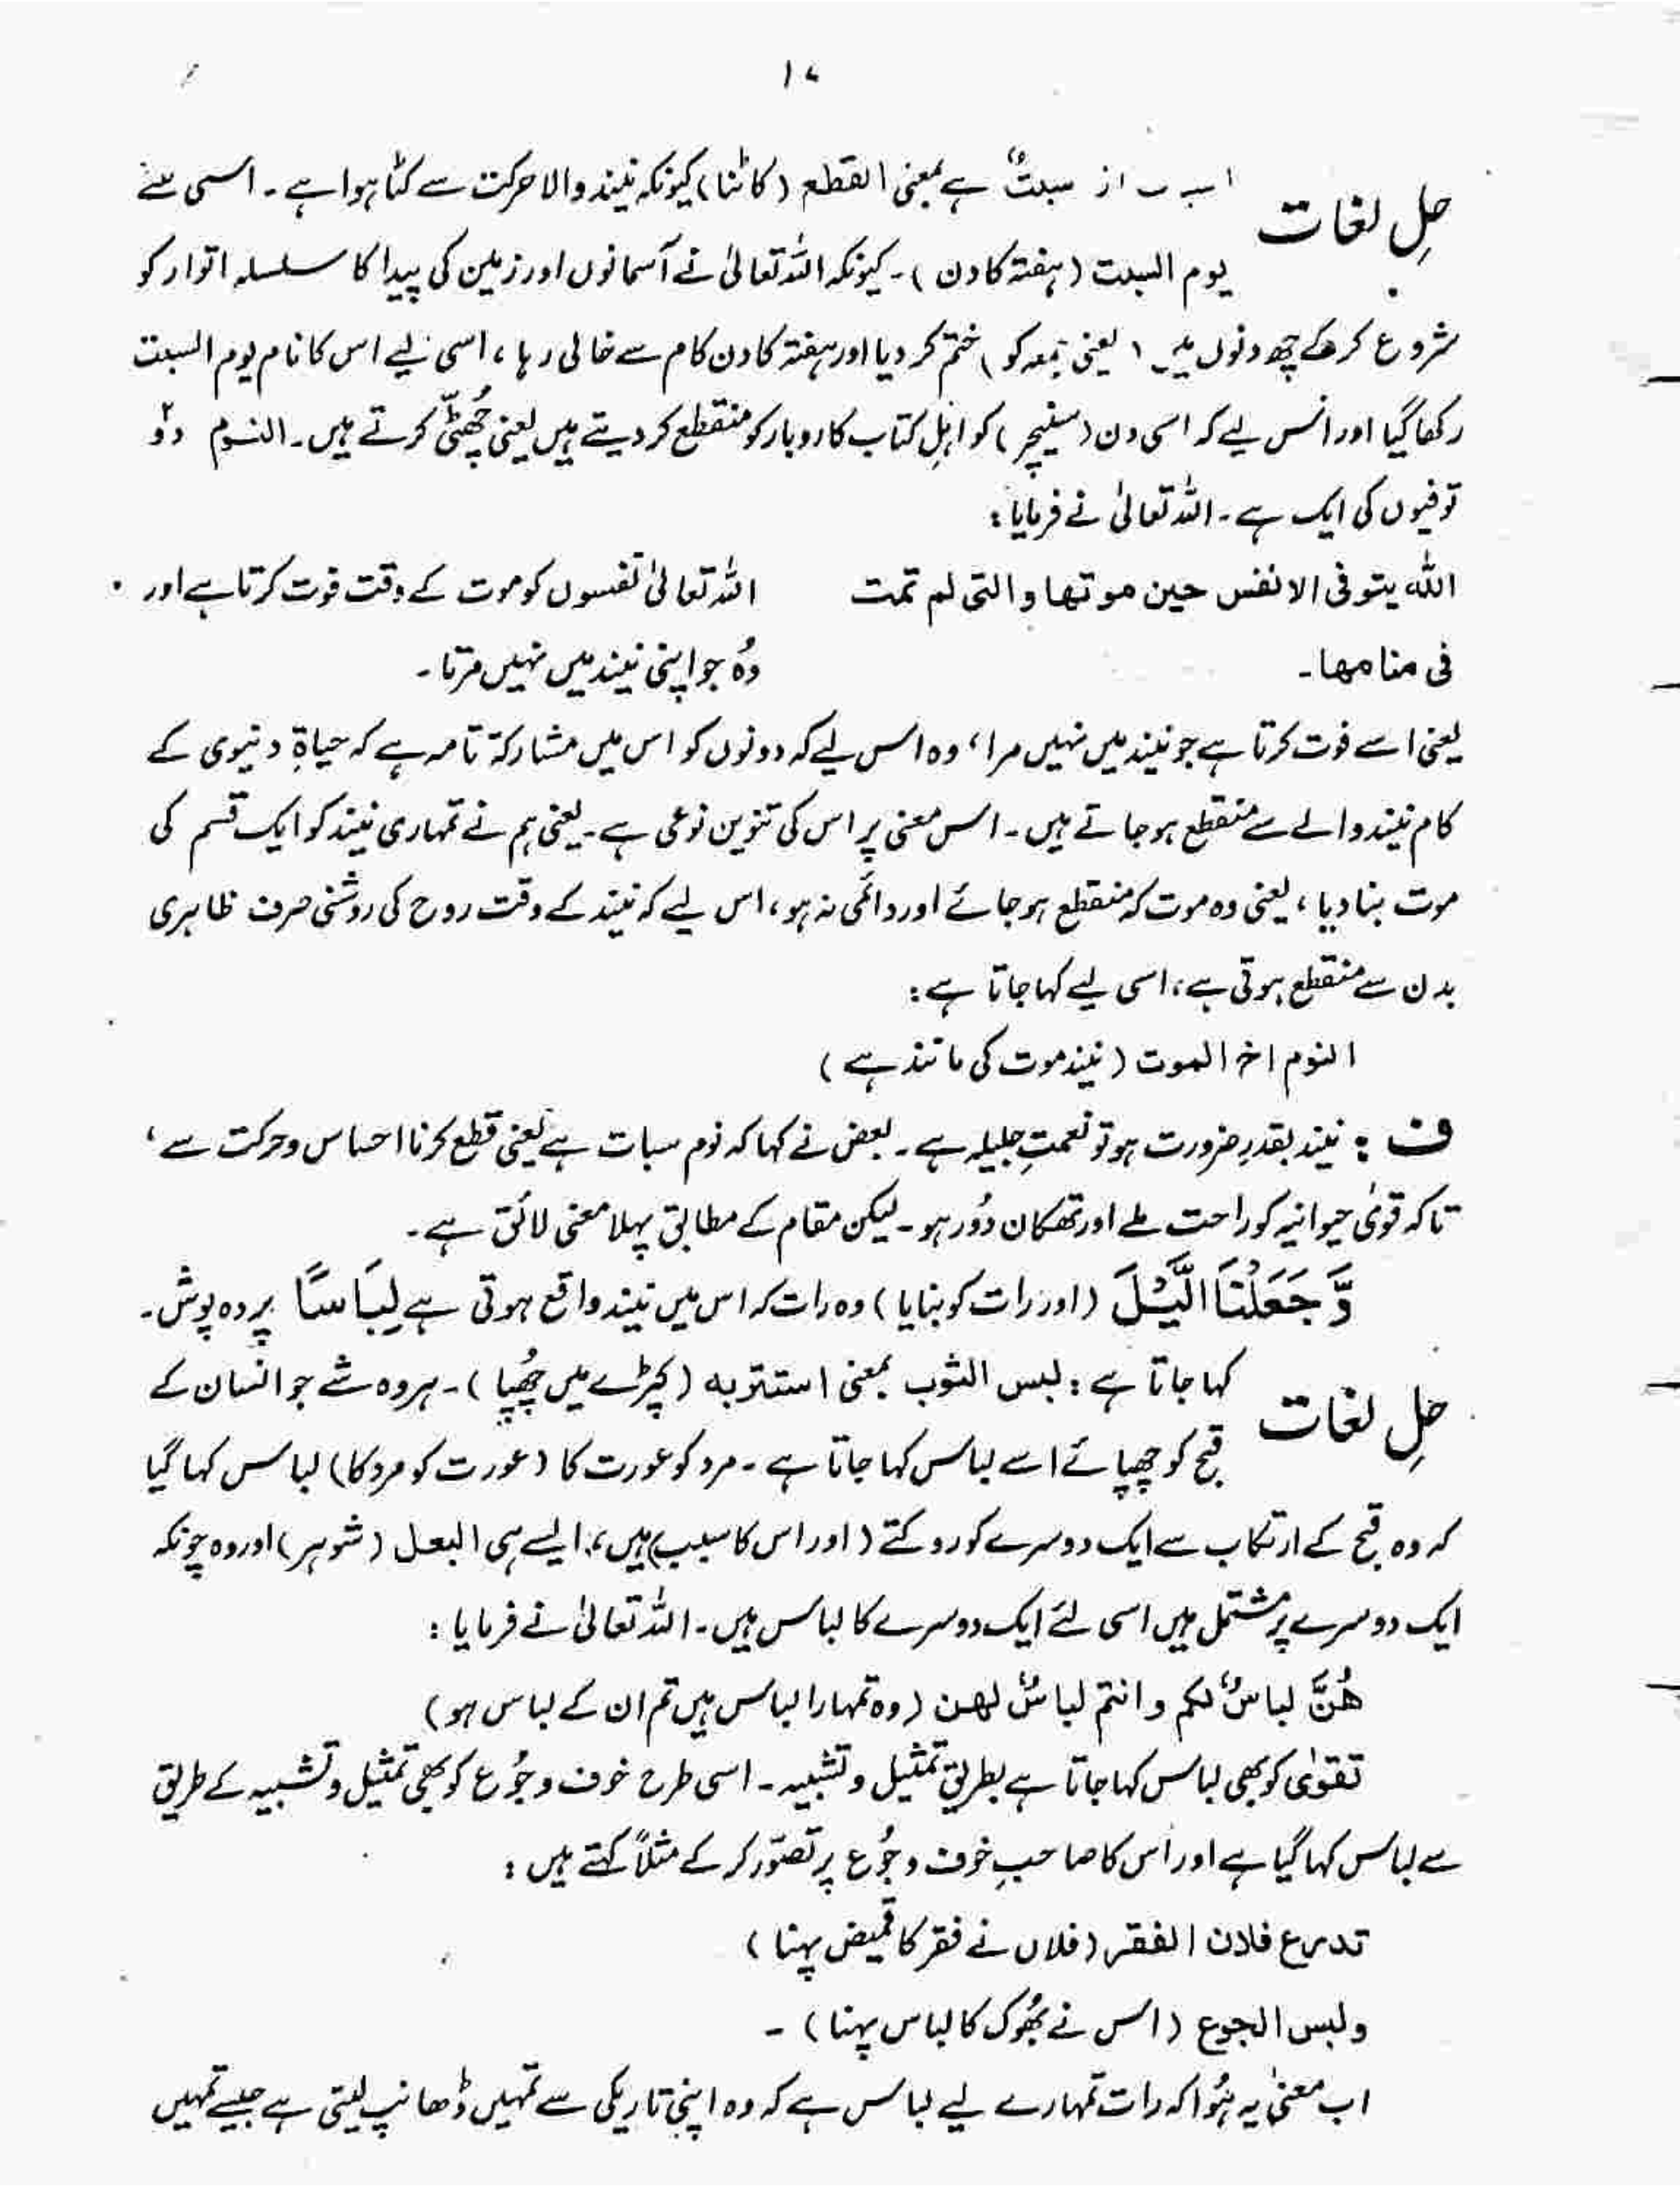 ۱۷
حلِ لغات
از سبتٌ ہے بمعنی القطع (کاٹنا) کیونکہ نیند والا حرکت سے کٹا ہوا ہے۔ اسی سے
یوم السبت (ہفتہ کا دن)۔ کیونکہ اللہ تعالیٰ نے آسمانوں اور زمین کی پیدا کا سلسلہ اتوار کو
شروع کرکے چھ دنوں میں (یعنی جمعہ کو) ختم کر دیا اور ہفتہ کا دن کام سے خالی رہا، اسی لیے اس کا نام یوم السبت
رکھا گیا اور اس لیے کہ اسی دن (سنیچر) کو اہلِ کتاب کاروبار کو منقطع کر دیتے ہیں یعنی چُھٹی کرتے ہیں۔ النوم دو
توفیوں کی ایک ہے۔ اللہ تعالیٰ نے فرمایا:
اللہ یتوفی الانفس حین موتھا والتی لم تمت اللہ تعالیٰ نفسوں کو موت کے وقت فوت کرتا ہے اور
فی منامھا۔ وُہ جو اپنی نیند میں نہیں مرتا۔
یعنی اسے فوت کرتا ہے جو نیند میں نہیں مرا، وہ اس لیے کہ دونوں کو اس میں مشارکۃ تامہ ہے کہ حیاۃِ دنیوی کے
کام نیند والے سے منقطع ہو جاتے ہیں۔ اس معنی پر اس کی تنوین نوعی ہے۔ یعنی ہم نے تمہاری نیند کو ایک قسم کی
موت بنا دیا، یعنی وہ موت کہ منقطع ہو جائے اور دائمی نہ ہو، اس لیے کہ نیند کے وقت روح کی روشنی صرف ظاہری
بدن سے منقطع ہوتی ہے، اسی لیے کہا جاتا ہے:
النوم اخ الموت (نیند موت کی مانند ہے)
ف: نیند بقدرِ ضرورت ہو تو نعمتِ جلیلہ ہے۔ بعض نے کہا کہ نوم سبات ہے یعنی قطع کرنا احساس و حرکت سے،
تاکہ قویٰ حیوانیہ کو راحت ملے اور تھکان دُور ہو۔ لیکن مقام کے مطابق پہلا معنی لائق ہے۔
وَّجَعَلْنَا الَّیْلَ (اور رات کو بنایا) وہ رات کہ اس میں نیند واقع ہوتی ہے لِبَاسًا پردہ پوش۔
حلِ لغات
کہا جاتا ہے: لبس الثوب بمعنی استتر بہ (کپڑے میں چُھپا)۔ ہر وہ شے جو انسان کے
قبح کو چھپائے اسے لباس کہا جاتا ہے۔ مرد کو عورت کا (عورت کو مرد کا) لباس کہا گیا
کہ وہ قبح کے ارتکاب سے ایک دوسرے کو روکتے (اور اس کا سبب) ہیں، ایسے ہی البعل (شوہر) اور وہ چونکہ
ایک دوسرے پر مشتمل ہیں اسی لئے ایک دوسرے کا لباس ہیں۔ اللہ تعالیٰ نے فرمایا:
ھُنَّ لباسٌ لکم و انتم لباسٌ لھن (وہ تمہارا لباس ہیں تم ان کے لباس ہو)
تقویٰ کو بھی لباس کہا جاتا ہے بطریقِ تمثیل و تشبیہ۔ اسی طرح خوف و جُوع کو بھی تمثیل و تشبیہ کے طریق
سے لباس کہا گیا ہے اور اس کا صاحبِ خوف و جُوع پر تصوّر کر کے مثلاً کہتے ہیں:
تدرع فلان الفقر (فلاں نے فقر کا قمیض پہنا)
ولبس الجوع (اس نے بُھوک کا لباس پہنا)۔
اب معنیٰ یہ ہُوا کہ رات تمہارے لیے لباس ہے کہ وہ اپنی تاریکی سے تمہیں ڈھانپ لیتی ہے جیسے تمہیں